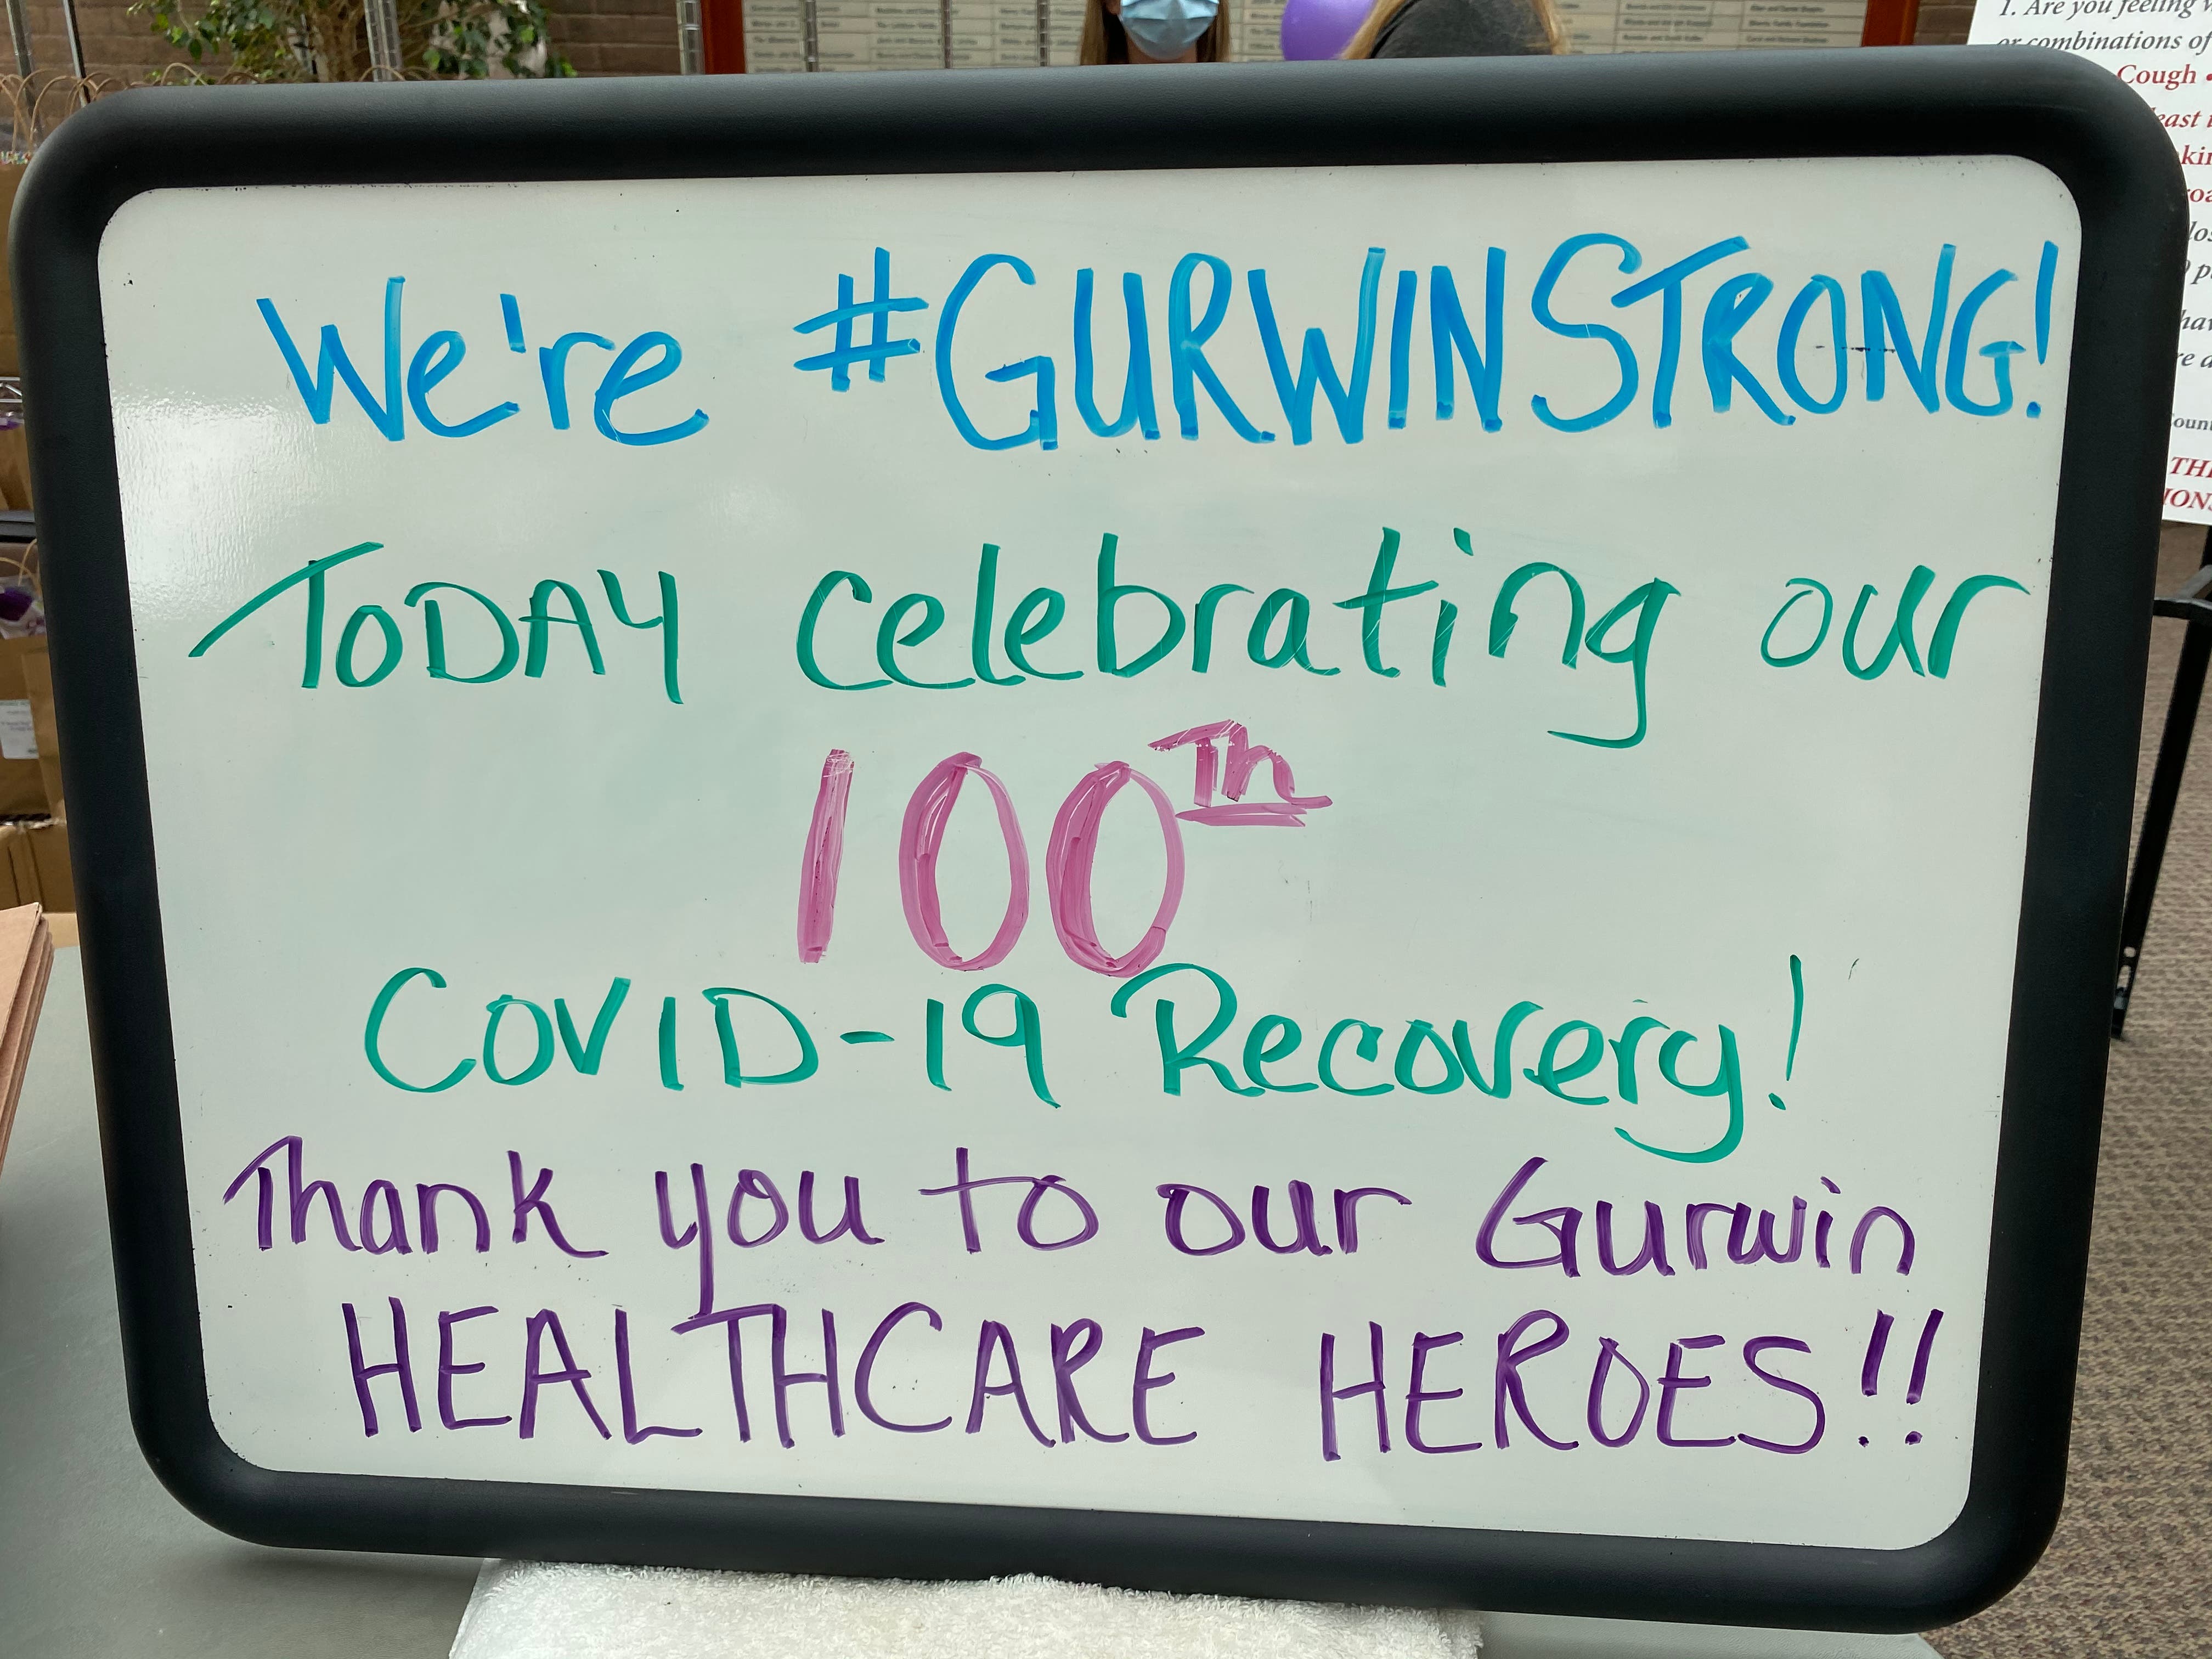 We're #GURWINSTRONG!
TODAY celebrating our
100Th
COVID-19 Recovery!
Thank you to our Gurwin
HEALTHCARE HEROES!!
1. Are you feeling
or combinations of
Cough •